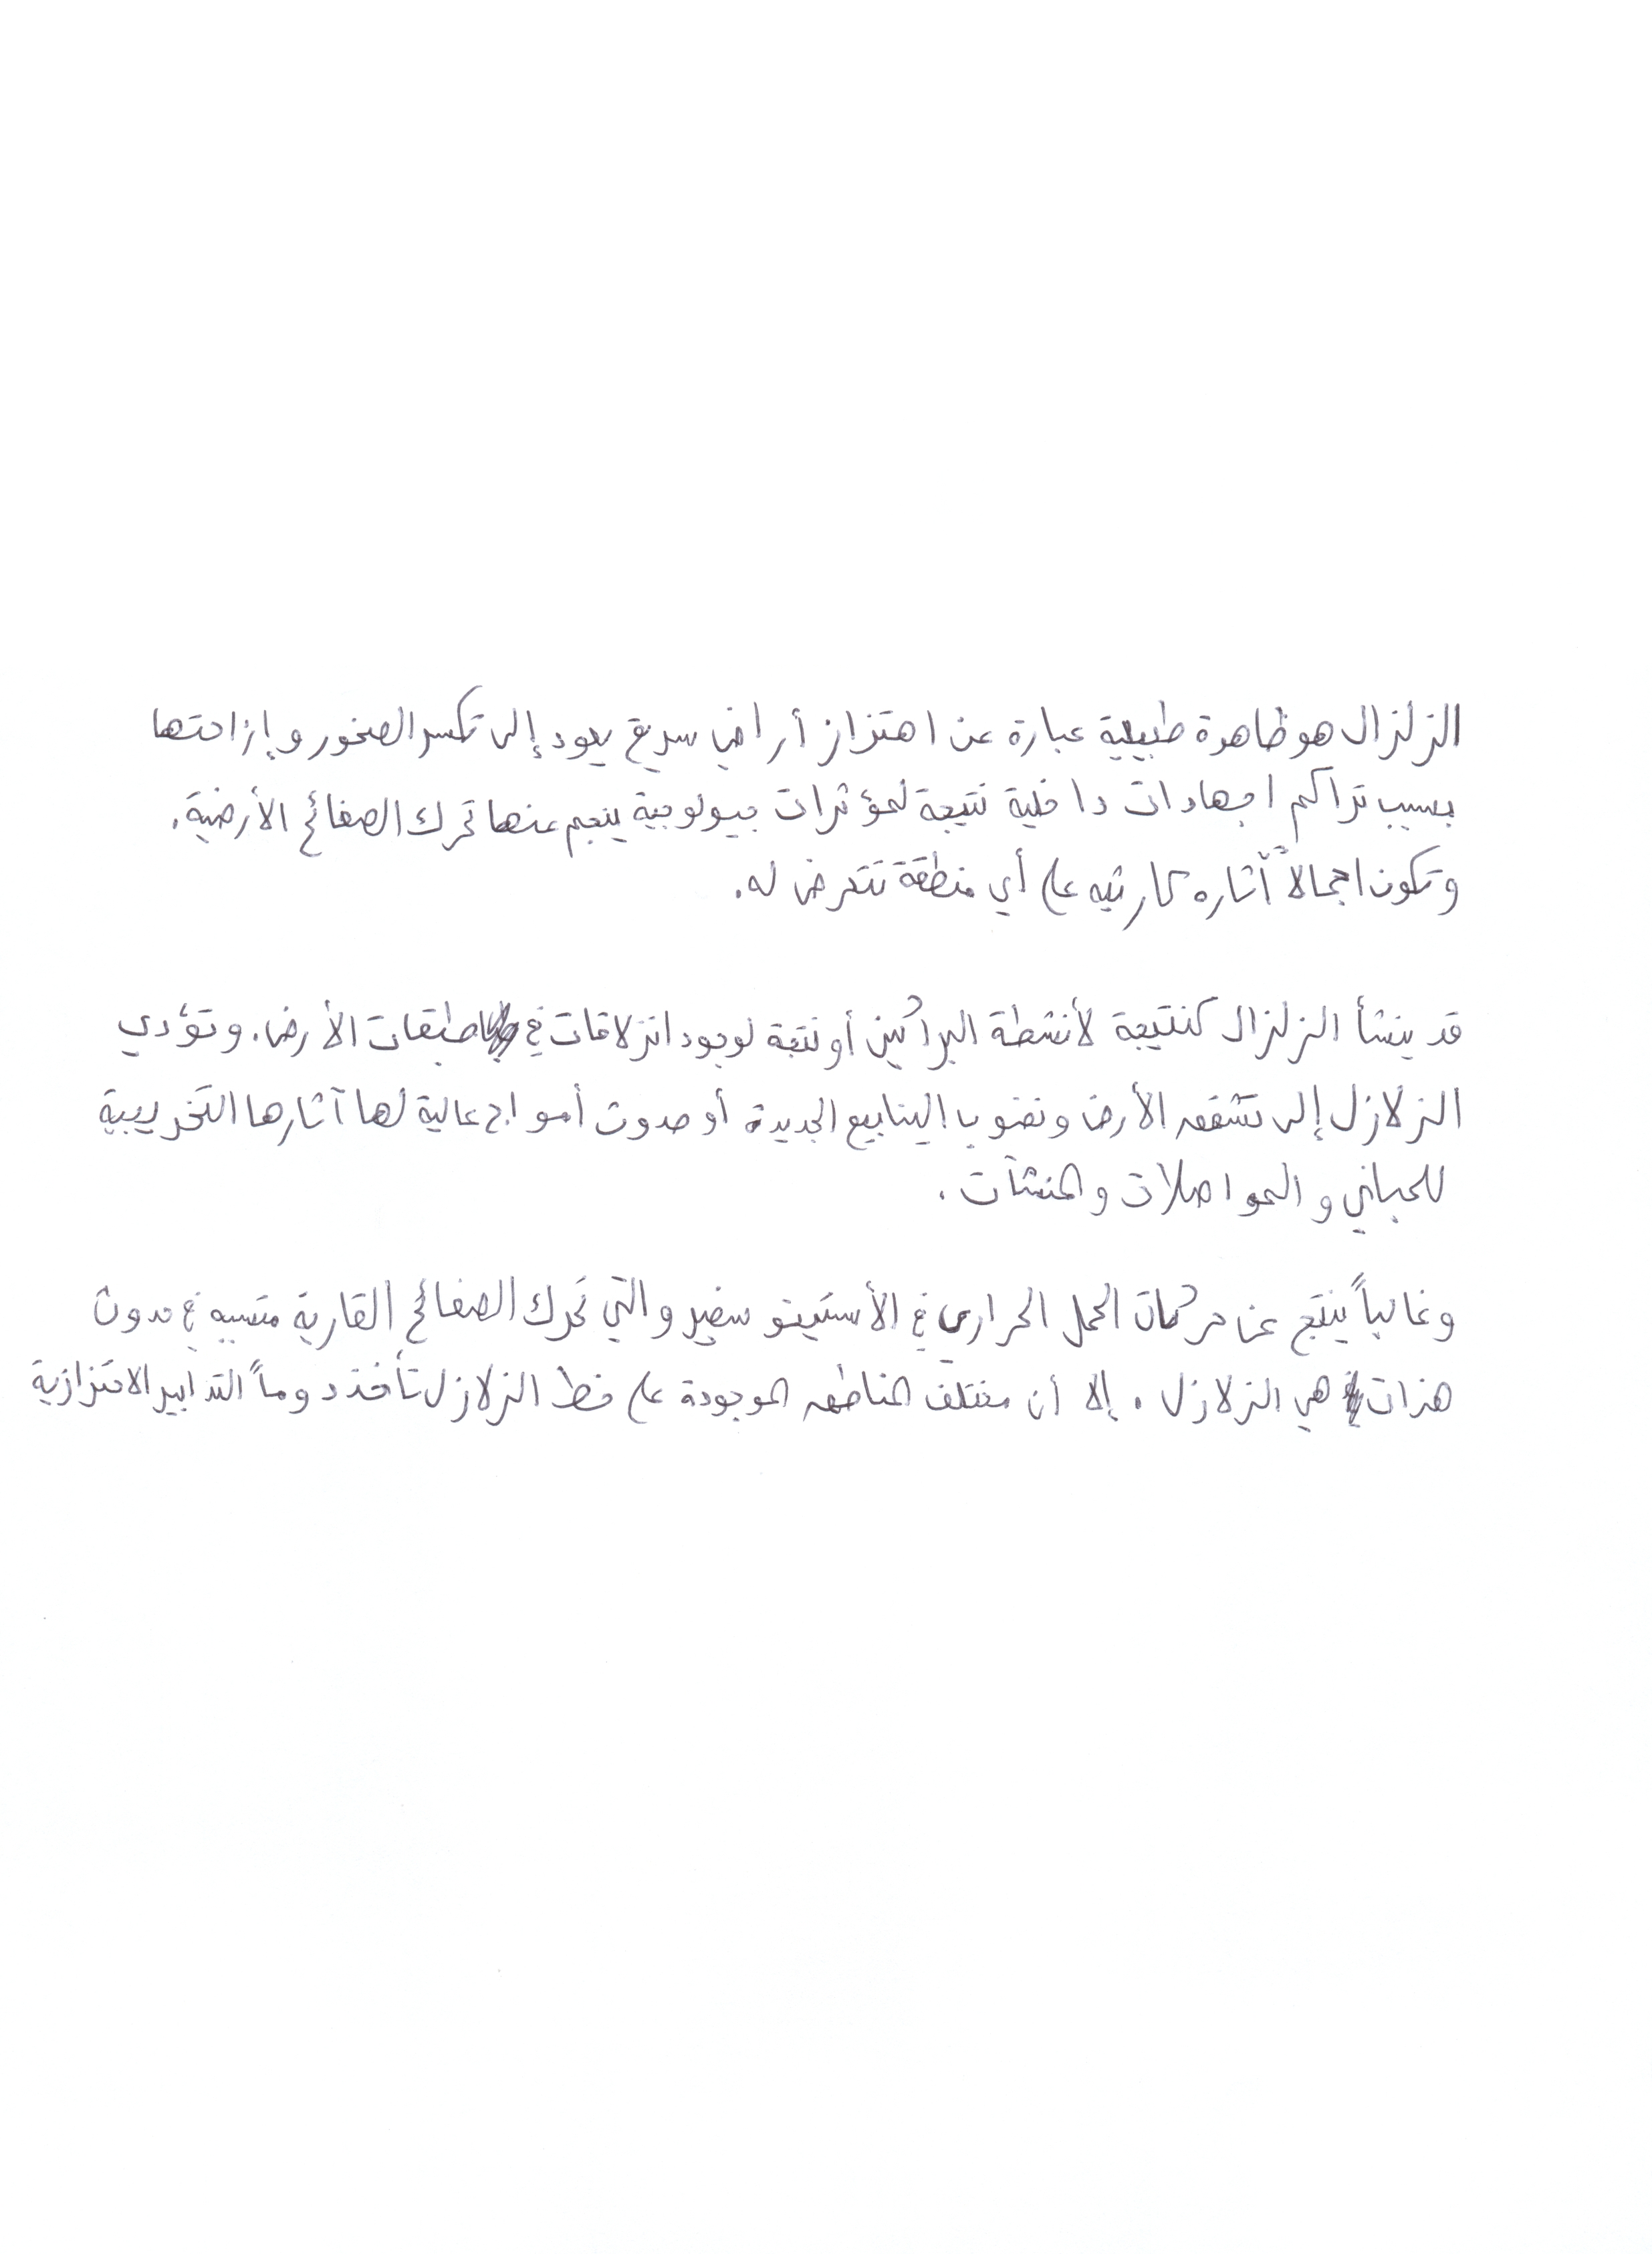 الزلزال هو ظاهرة طبيعية عبارة عن اهتزاز أراضي سريع يعود إلى تكسر الصخور وإزاحتها
بسبب تراكم اجهادات داخلية نتيجة لمؤثرات جيولوجية ينجم عنها تحرك الصفائح الأرضية.
وتكون اجمالاً آثاره كارثيه على أي منطقة تتعرض له.
قد ينشأ الزلزال كنتيجة لأنشطة البراكين أو نتجة لوجود انزلاقات في طبقات الأرض. وتؤدي
الزلازل إلى تشقق الأرض ونضوب الينابيع الجديدة أو حدوث أمواج عالية لها آثارها التخريبية
للمباني والمواصلات والمنشآت.
وغالباً ينتج عن حركات الحمل الحراري في الأستينو سفير والتي تحرك الصفائح القارية متسببه في حدوث
هزات هي الزلازل. إلا أن مختلف المناطق الموجودة على خط الزلازل تأخذ دوماً التدابير الاحتزازية